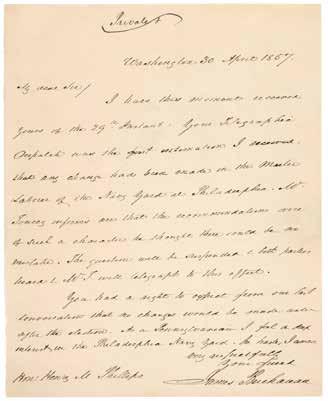 Private
Washington 30 April 1857.
My dear Sir/
I have this moment received
yours of the 29th Instant. Your Telegraphic
Despatch was the first information I received
that any change had been made in the Master
Laborer of the Navy Yard at Philadelphia. Mr.
Toucey informs me that the recommendations were
of such a character he thought there could be no
mistake. The question will be suspended & both parties
heard & Mr. T. will telegraph to this effect.
You had a right to expect from our last
conversation that no changes would be made until
after the election. As a Pennsylvanian I feel a deep
interest in the Philadelphia Navy Yard. In haste, I am
very respectfully
Your friend
James Buchanan
Hon: Henry M. Phillips